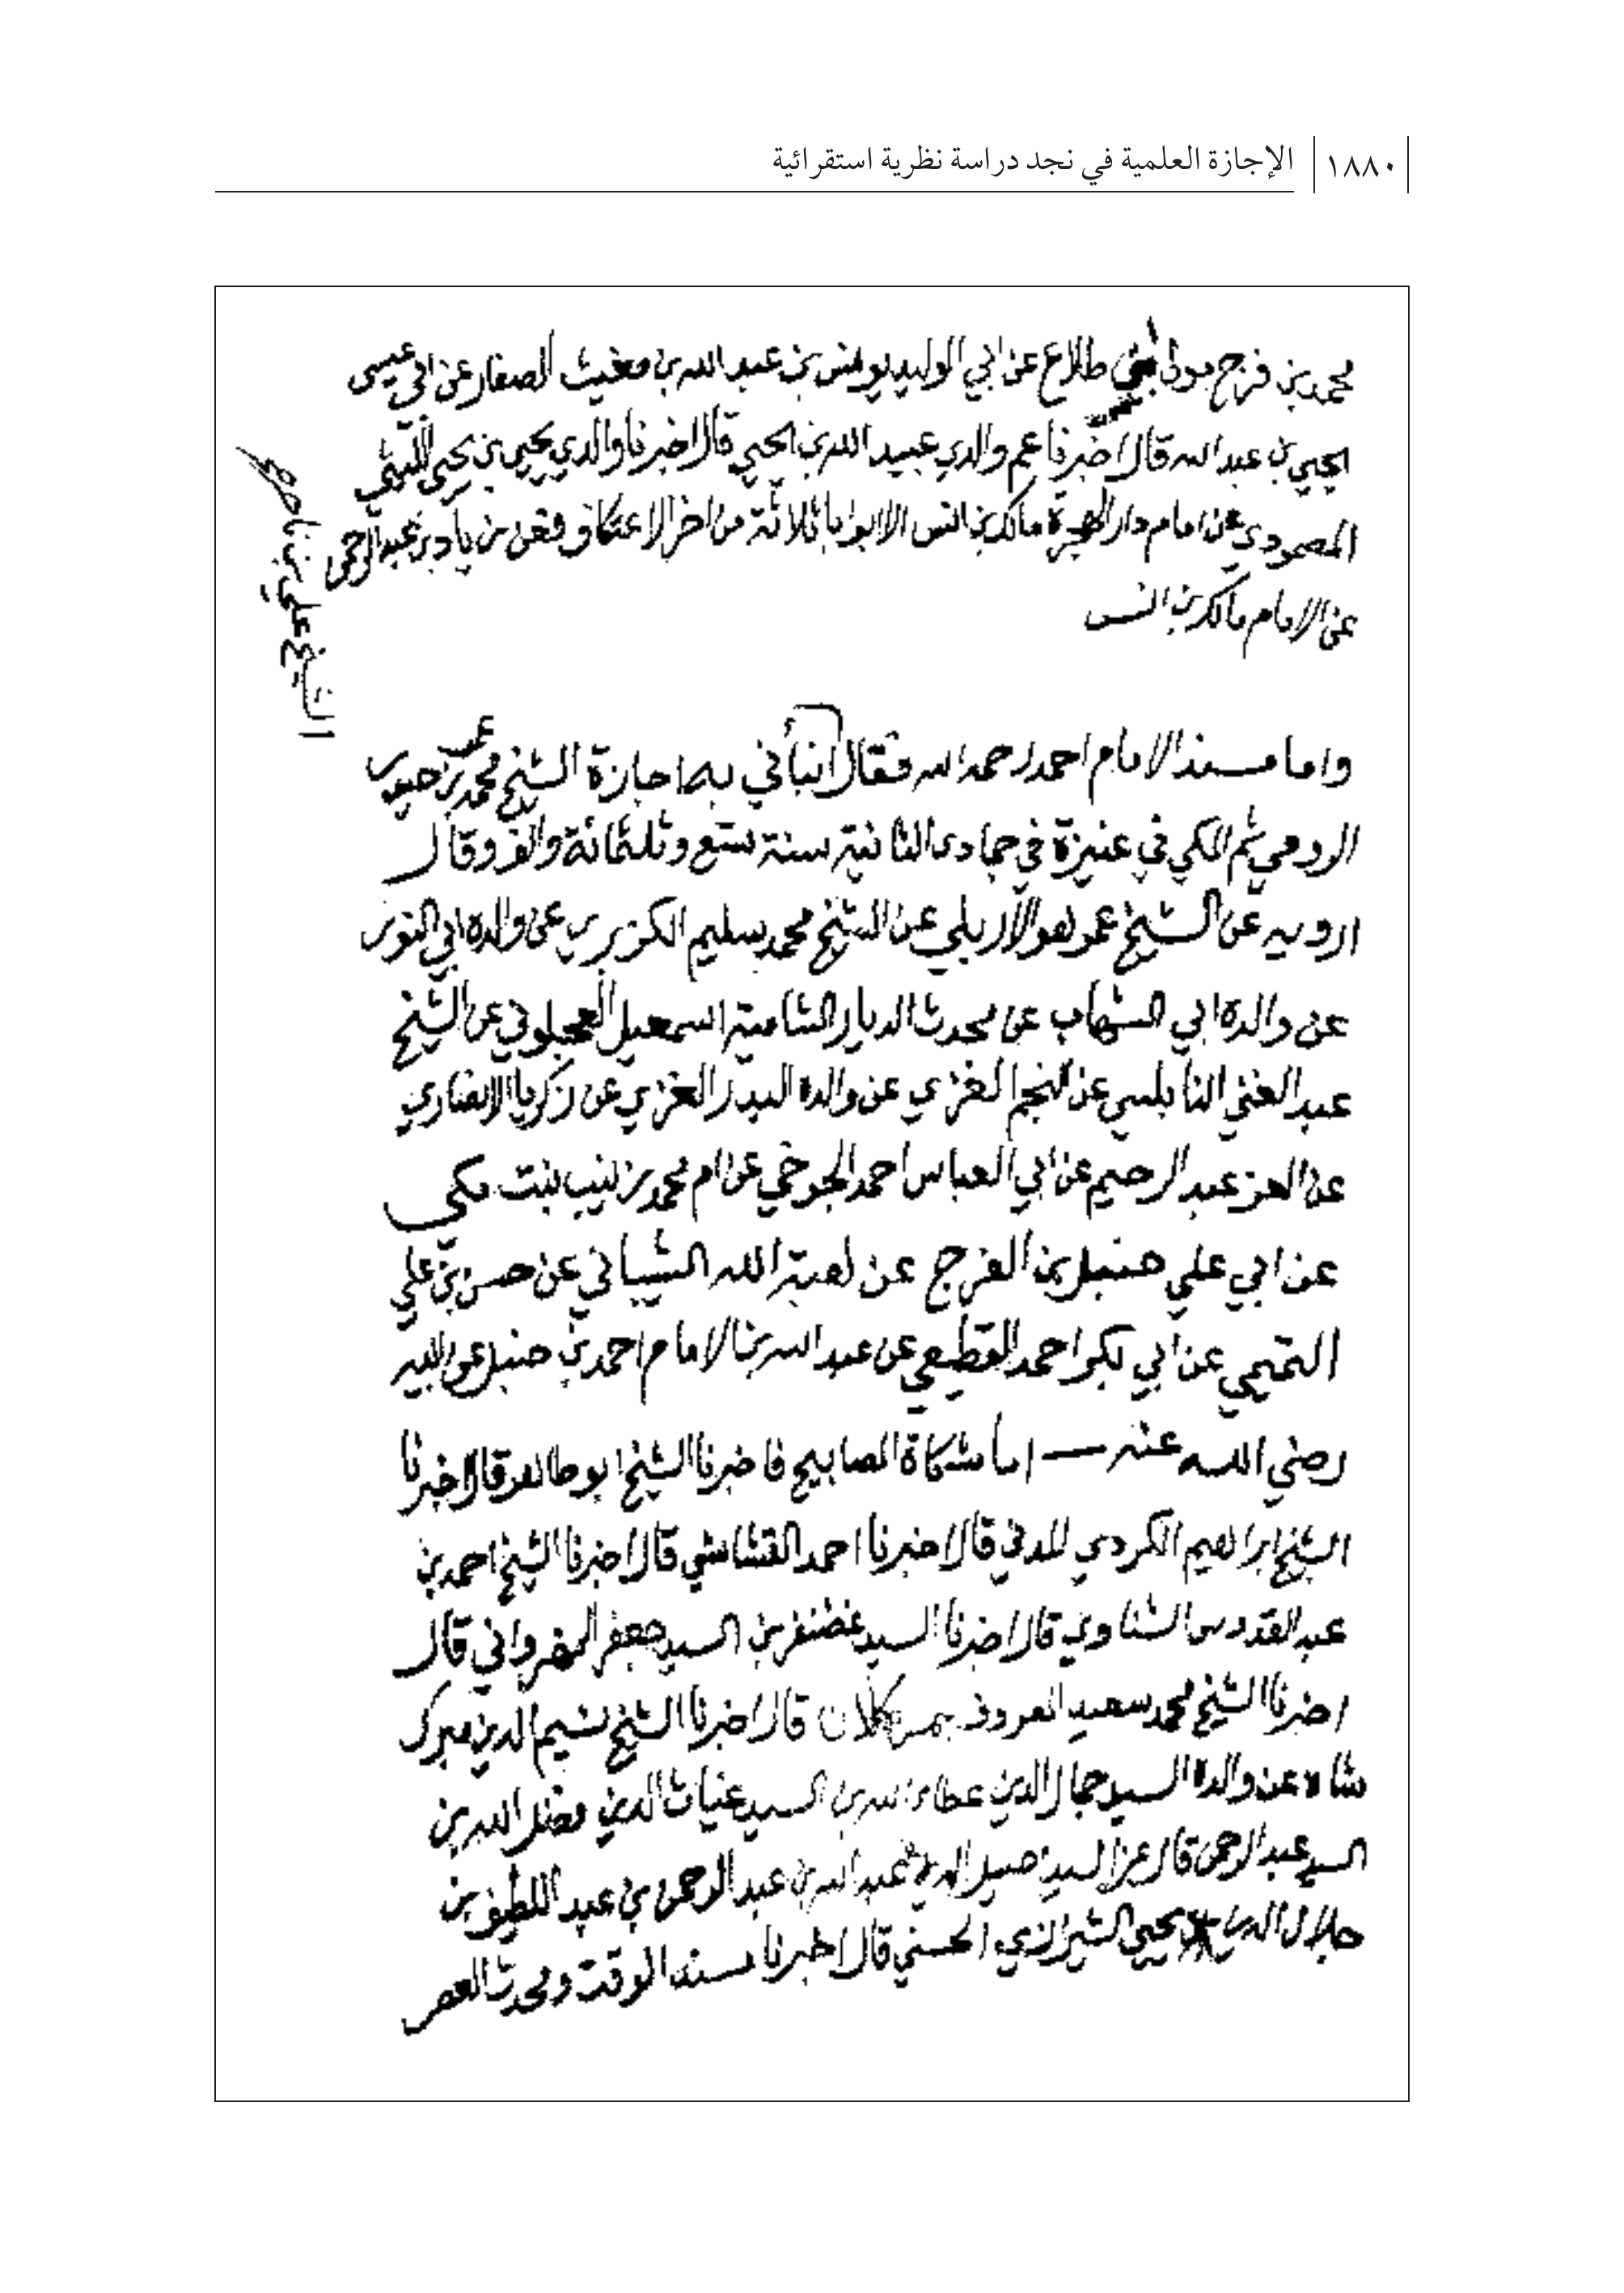 ١٨٨٠ الإجازة العلمية في نجد دراسة نظرية استقرائية
محمد بن فرج مولى ابن طلاع عن ابي الوليد يونس بن عبد الله بن مغيث الصفار عن ابي عيسى
يحيى بن عبد الله قال اخبرنا عم والدي عبيد الله بن يحيى قال اخبرنا والدي يحيى بن يحيى الليثي
المصمودي عن امام دار الهجرة مالك بن انس الا ابوابا ثلاثة من اخر الاعتكاف فعن زياد بن عبد الرحمن
عن الامام مالك بن انس
الشيخ علي بن ناصر
واما مسند الامام احمد رحمه الله فقال انبأني به اجازة الشيخ محمد بن
الرومي ثم المكي في عنيزة في جمادى الثانية سنة تسع وثلثمائة والف وقال
ارويه عن الشيخ عمر هو الاربلي عن الشيخ محمد سليم الكزبري عن والده ابي النور
عن والده ابي الشهاب عن محدث الديار الشامية اسمعيل العجلوني عن الشيخ
عبد الغني النابلسي عن النجم الغزي عن والده البدر الغزي عن زكريا الانصاري
عن العز عبد الرحيم عن ابي العباس احمد الجوخي عن ام محمد زينب بنت مكي
عن ابي علي حنبل بن الفرج عن هبة الله الشيباني عن حسن بن علي
التميمي عن ابي بكر احمد القطيعي عن عبد الله بن الامام احمد بن حنبل عن ابيه
رضي الله عنه — اما مشكاة المصابيح فاخبرنا الشيخ ابو طاهر قال اخبرنا
الشيخ ابراهيم الكردي المدني قال اخبرنا احمد القشاشي قال اخبرنا الشيخ احمد بن
عبد القدوس الشناوي قال اخبرنا السيد غضنفر بن السيد جعفر النهرواني قال
اخبرنا الشيخ محمد سعيد المعروف بمير كلان قال اخبرنا الشيخ نسيم الدين ميرك
شاه عن والده السيد جمال الدين عطاء الله بن السيد غياث الدين فضل الله بن
السيد عبد الرحمن قال عن السيد اصيل الدين عبد الله بن عبد الرحمن بن عبد اللطيف بن
جلال الدين يحيى الشيرازي الحسني قال اخبرنا مسند الوقت ومحدث العصر